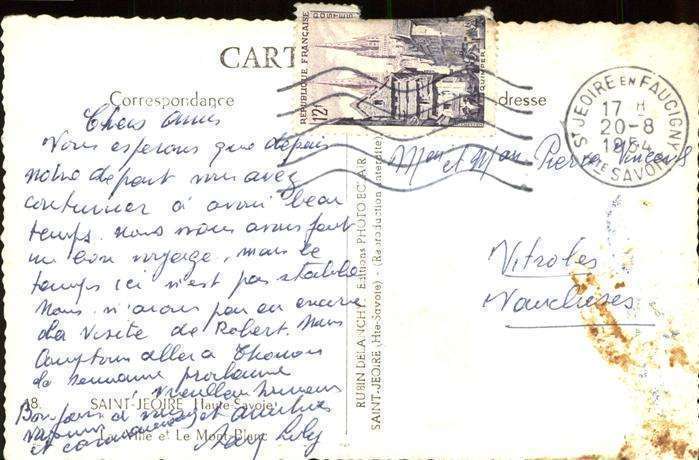 CART
Correspondance
dresse
REPUBLIQUE FRANÇAISE
POSTES
12F
QUIMPER
ST JEOIRE EN FAUCIGNY
17 H
20-8
1954
HTE SAVOIE
Chers amis
Nous esperons que depuis
notre depart vous avez
continuer a avoir beau
temps. nous nous avons fait
un bon voyage, mais le
temps ici n'est pas stable
Nous n'avons pas eu encore
la visite de Robert. Nous
comptons aller a Thonon
la semaine prochaine
Bonjour a
et
Pierre Vincent
Vitroles
Vaucluse
RUBIN DELANCHY, Editions PHOTO ECLAIR
SAINT-JEOIRE (Hte-Savoie) - (Reproduction interdite)
18. SAINT-JEOIRE (Haute-Savoie)
La Ville et Le Mont Blanc